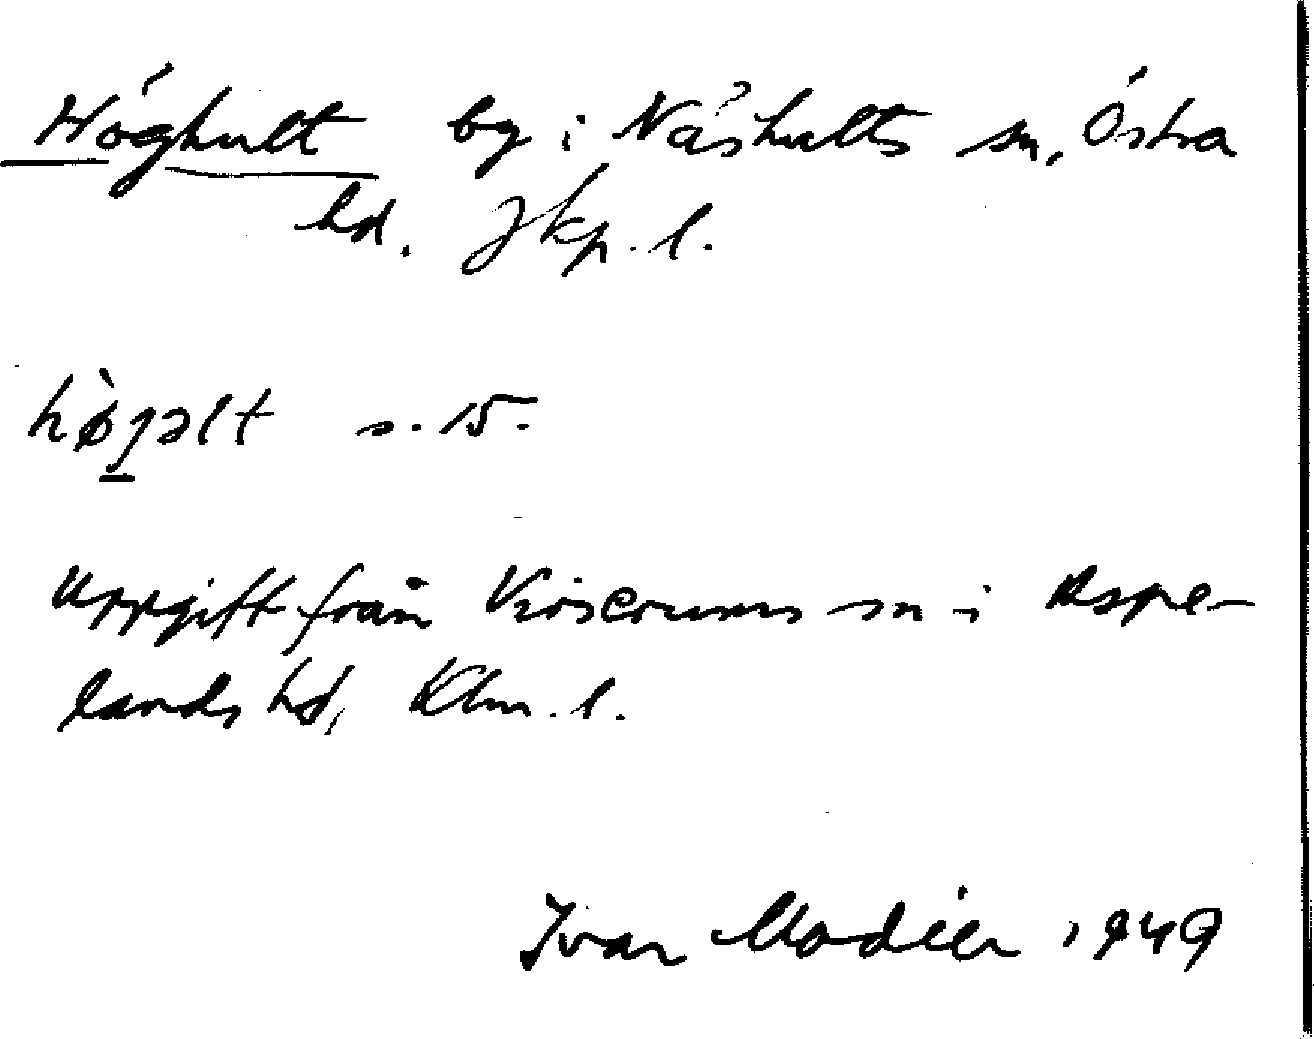 Höghult by i Näshults sn, Östra
hd. Jkp. l.
hø̀gəlt s. 15.
Uppgift från Virserums sn i Aspe-
lands hd, Klm. l.
Ivar Modéer 1949